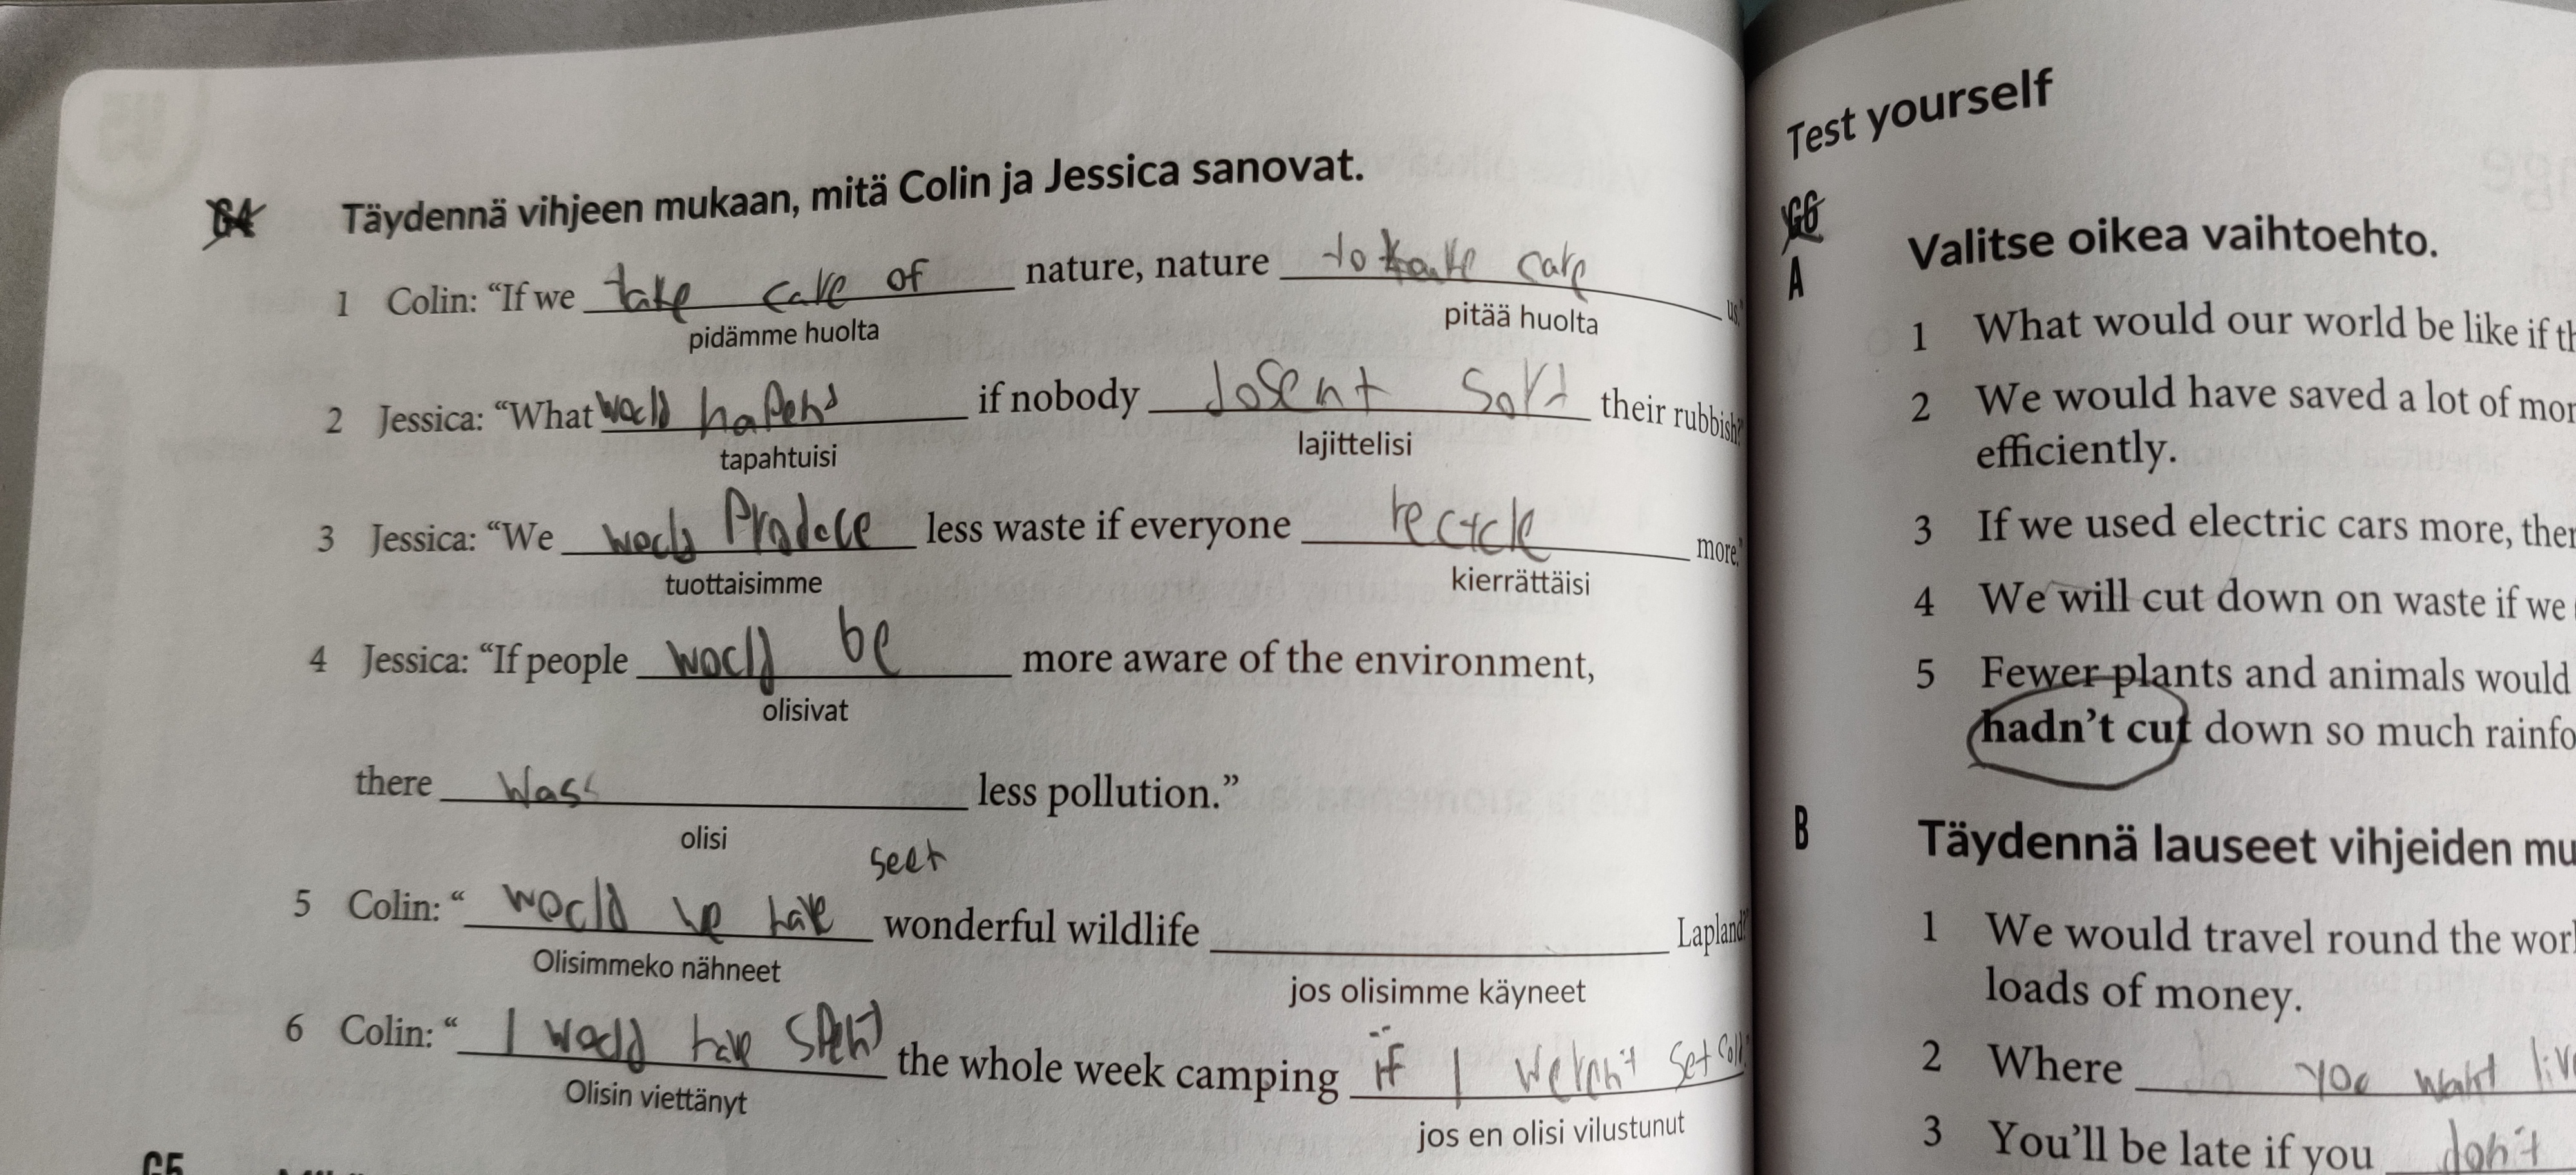 G4 Täydennä vihjeen mukaan, mitä Colin ja Jessica sanovat.
1 Colin: “If we take care of nature, nature to take care us.”
pidämme huolta pitää huolta
2 Jessica: “What would hapens if nobody dosent sort their rubbish?”
tapahtuisi lajittelisi
3 Jessica: “We would produce less waste if everyone recycle more.”
tuottaisimme kierrättäisi
4 Jessica: “If people would be more aware of the environment,
olisivat
there wass less pollution.”
olisi
seet
5 Colin: “would we have wonderful wildlife Lapland?”
Olisimmeko nähneet jos olisimme käyneet
6 Colin: “I would have spent the whole week camping if I weren't set cold.”
Olisin viettänyt jos en olisi vilustunut
G5
Test yourself
G6
A Valitse oikea vaihtoehto.
1 What would our world be like if th
2 We would have saved a lot of mor
efficiently.
3 If we used electric cars more, ther
4 We will cut down on waste if we
5 Fewer plants and animals would
hadn't cut down so much rainfo
B Täydennä lauseet vihjeiden mu
1 We would travel round the worl
loads of money.
2 Where do you want live
3 You'll be late if you don't